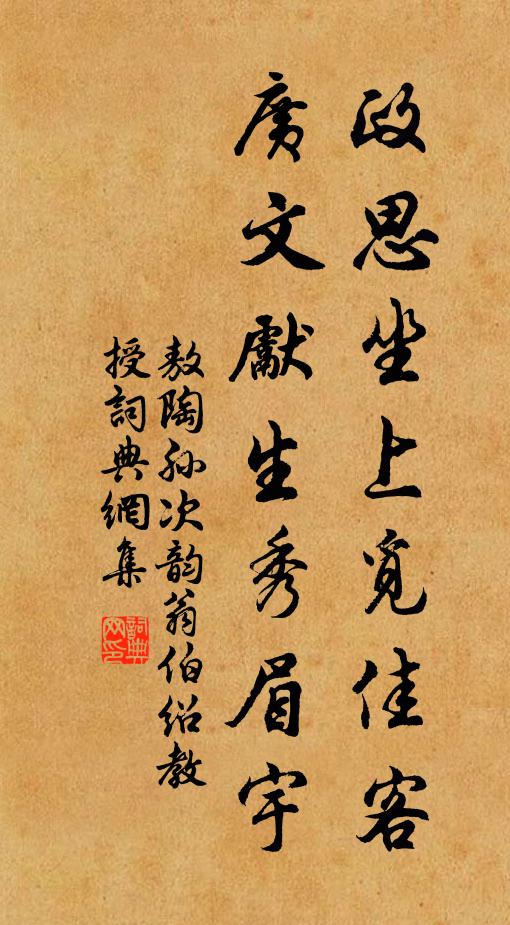 政思坐上覓佳客
廣文獻生秀眉宇
敖陶孫次韵翁伯紹教
授詞典網集
詞典网印